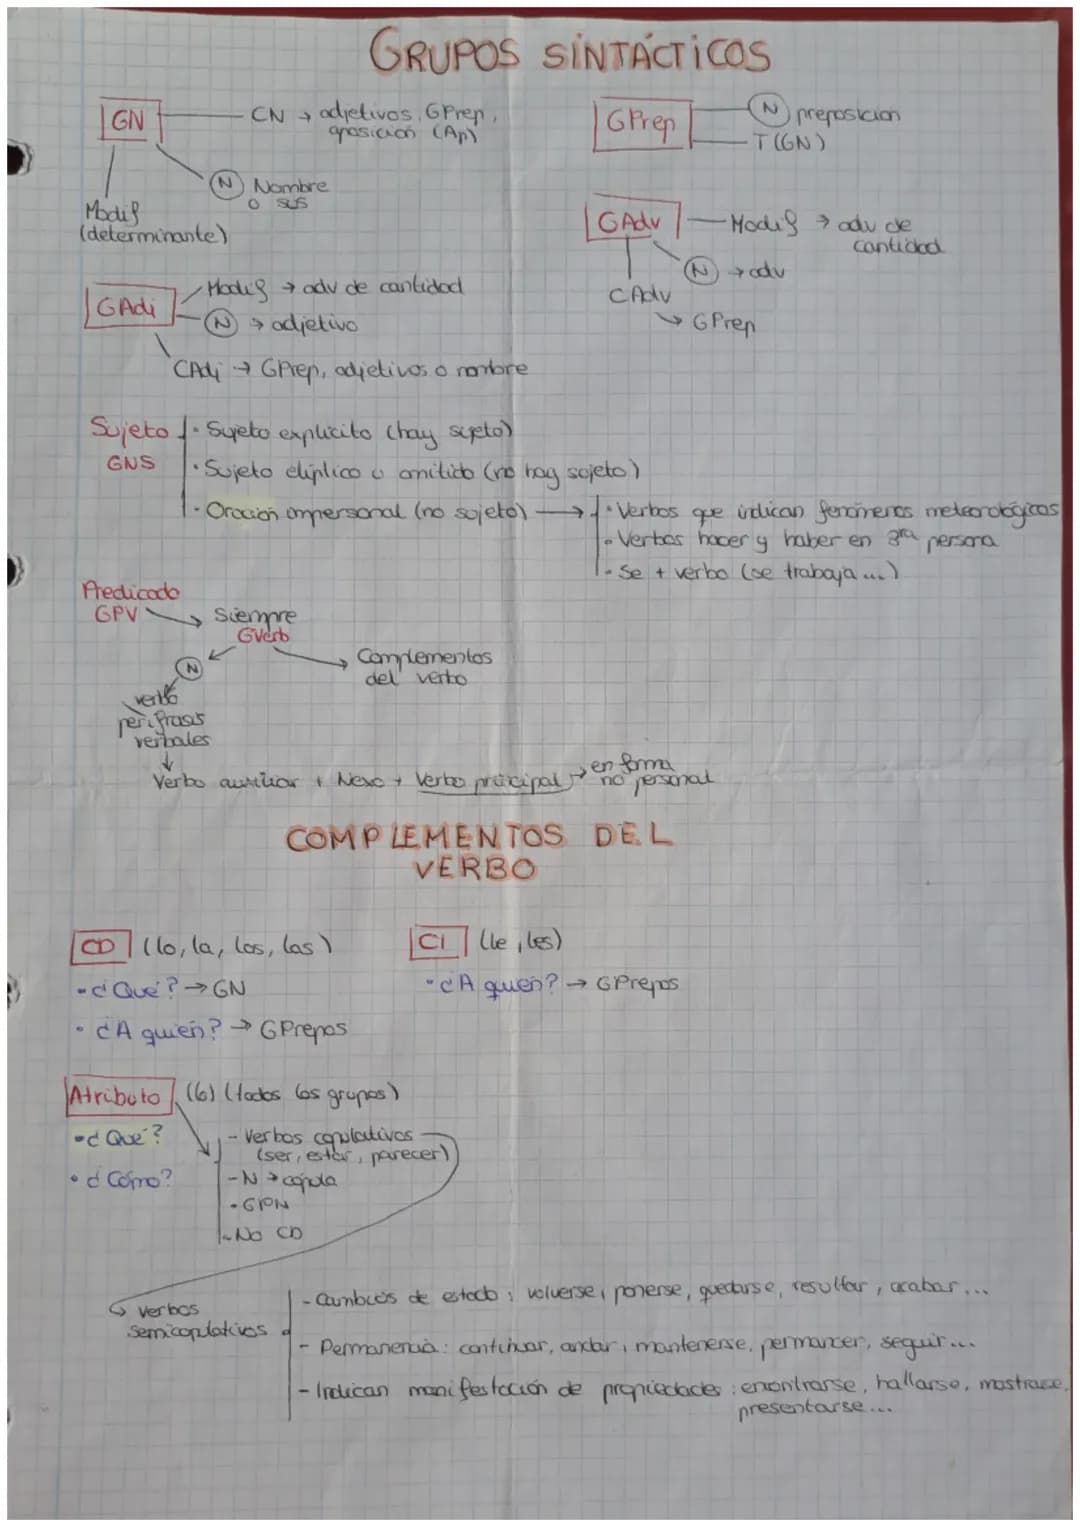 GRUPOS SINTÁCTICOS
GN
CN → adjetivos, GPrep,
aposición (Ap)
N Nombre
o sus
Modif
(determinante)
GPrep
N preposición
T (GN)
GAdv
Modif → adv de
cantidad
N → adv
CAdv
→ GPrep
GAdj
Modif → adv de cantidad
N → adjetivo
CAdj → GPrep, adjetivos o nombre
Sujeto
GNS
· Sujeto explícito (hay sujeto)
· Sujeto elíptico u omitido (no hay sujeto)
· Oración impersonal (no sujeto) →
· Verbos que indican fenómenos meteorológicos
· Verbos hacer y haber en 3ra persona
· Se + verbo (se trabaja ...)
Predicado
GPV → Siempre
GVerb
N
Complementos
del verbo
verbo
perífrasis
verbales
Verbo auxiliar + Nexo + Verbo principal → en forma
no personal
COMPLEMENTOS DEL
VERBO
CD (lo, la, los, las)
• ¿Qué? → GN
• ¿A quién? → GPrepos
CI (le, les)
• ¿A quién? → GPrepos
Atributo (lo) (todos los grupos)
• ¿Qué?
• ¿Cómo?
- Verbos copulativos
(ser, estar, parecer)
- N → cópula
- GPN
- No CD
→ verbos
semicopulativos
- Cambios de estado : volverse, ponerse, quedarse, resultar, acabar...
- Permanencia : continuar, andar, mantenerse, permancer, seguir...
- Indican manifestación de propiedades : encontrarse, hallarse, mostrarse,
presentarse...